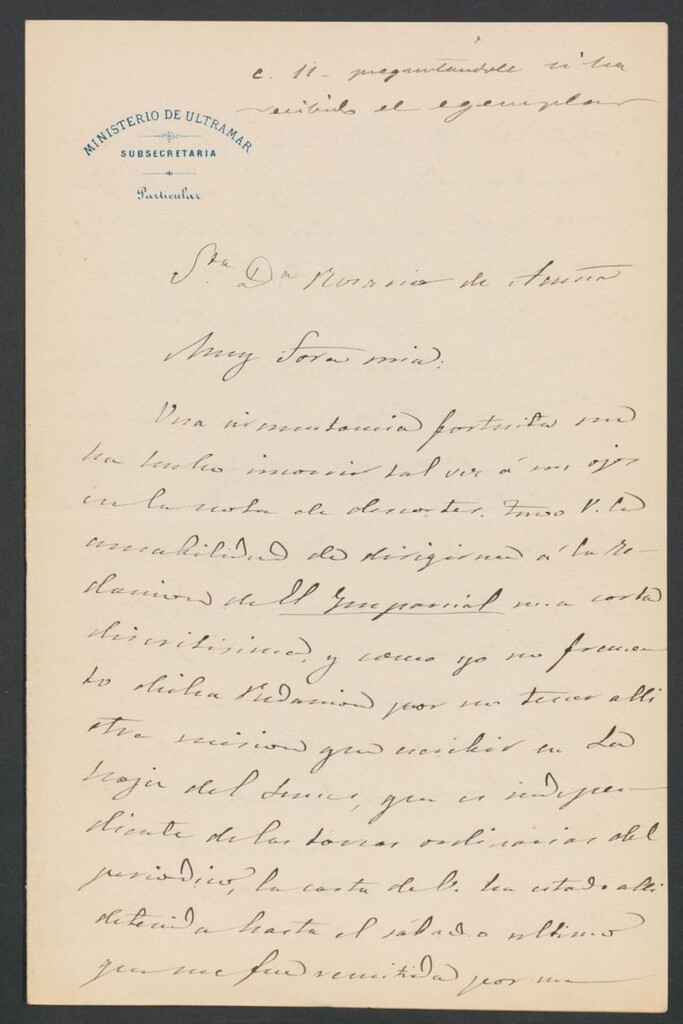 c. 11 - preguntándole si ha
recibido el egemplar
MINISTERIO DE ULTRAMAR
SUBSECRETARIA
Particular
Sta Da Rosario de Acuña
Muy Sora mia:
Una circunstancia fortuita me
ha hecho incurrir tal vez á sus ojos
en la nota de descortes. Tuvo V. la
amabilidad de dirigirme á la Re-
daccion de El Imparcial una carta
discretisima, y como yo no frecuen
to dicha Redaccion por no tener alli
otra mision que escribir en La
hoja del lunes, que es indepen-
diente de las tareas ordinarias del
periodico, la carta de V. ha estado alli
detenida hasta el sábado ultimo
que me fue remitida por un